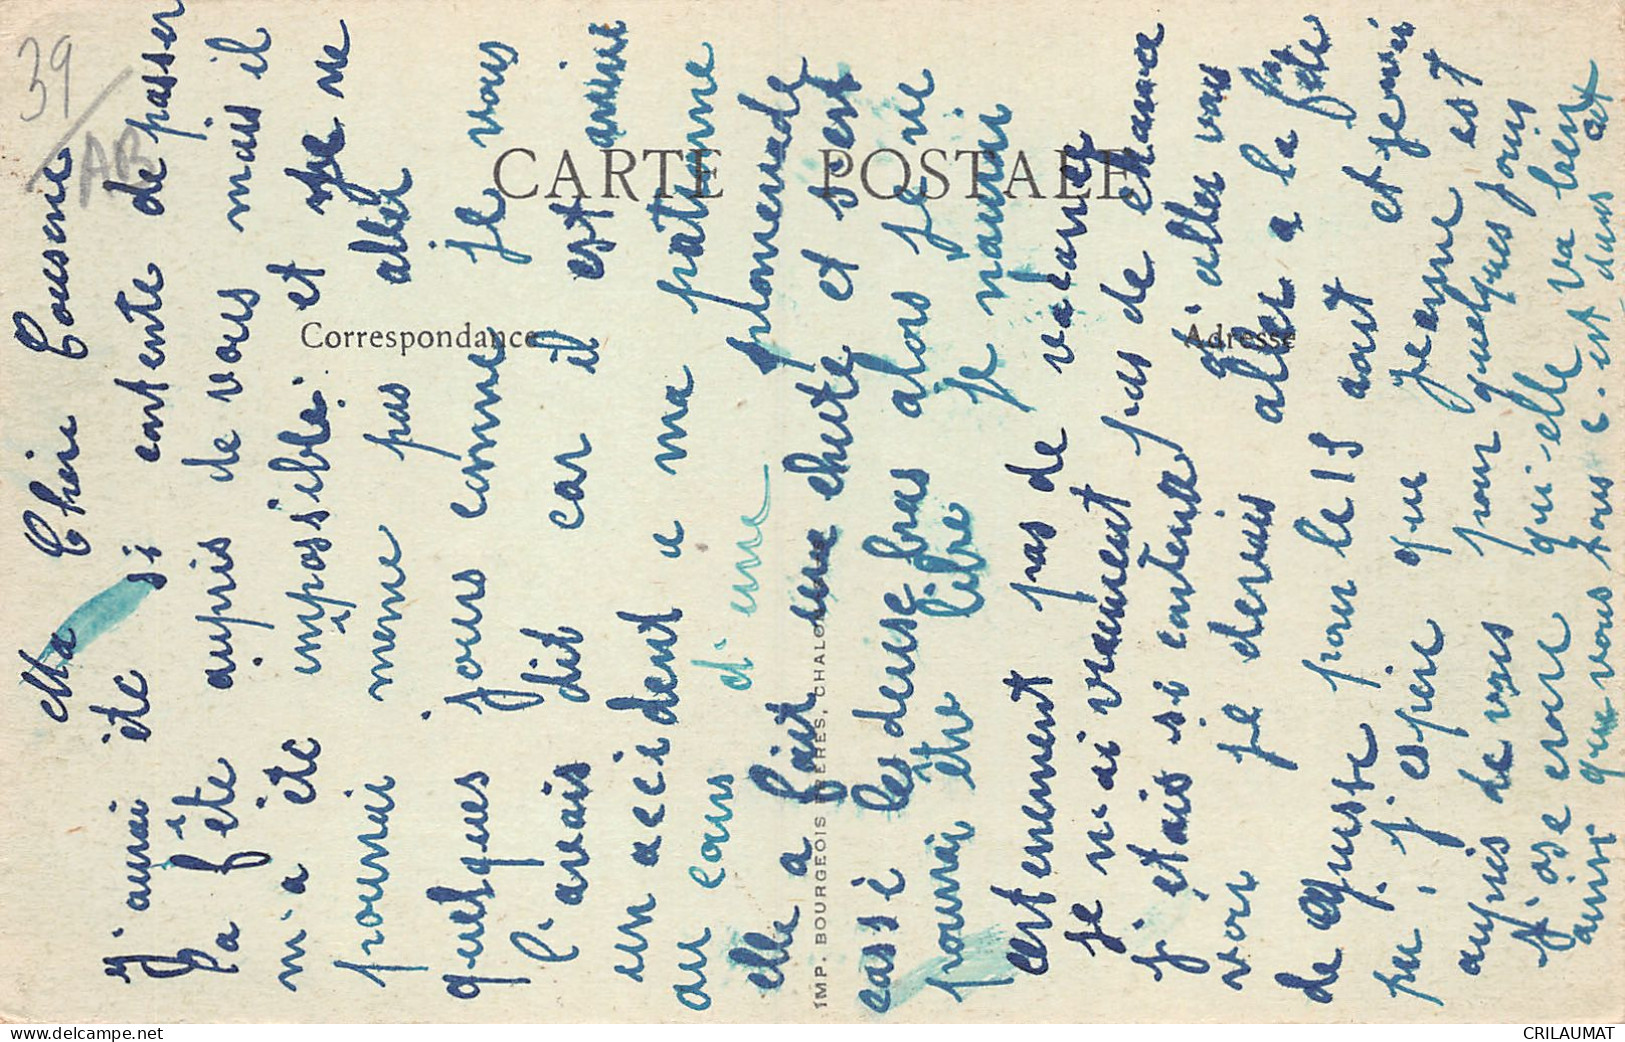 39/
AB
CARTE POSTALE
Correspondance
Adresse
IMP. BOURGEOIS FRÈRES, CHALON
Ma Chère Cousine
J'aurai étè si contente de passer
la fête aupris de vous mais il
m'a étè impossible: et je ne
pourrai même pas aller
quelques jours comme je vous
l'avais dit car il est arrivé
un accident a ma patronne
au cours d'une promenade
elle a fait une chute et s'est
cassé les deuse bras alors je ne
pourrai être libre je n'aurai
certenement pas de vacance
je n'ai vraiment pas de chance
j'étais si contente d'aller vous
voir je devais aller a la fête
de Guisse pour le 15 aout et je n'ai
pu, j'espère que Jeanne est
aupris de vous pour quelques jours
j'ose croire qu'elle va bient
ainsi que vous tous c. est dans cet
www.delcampe.net
CRILAUMAT